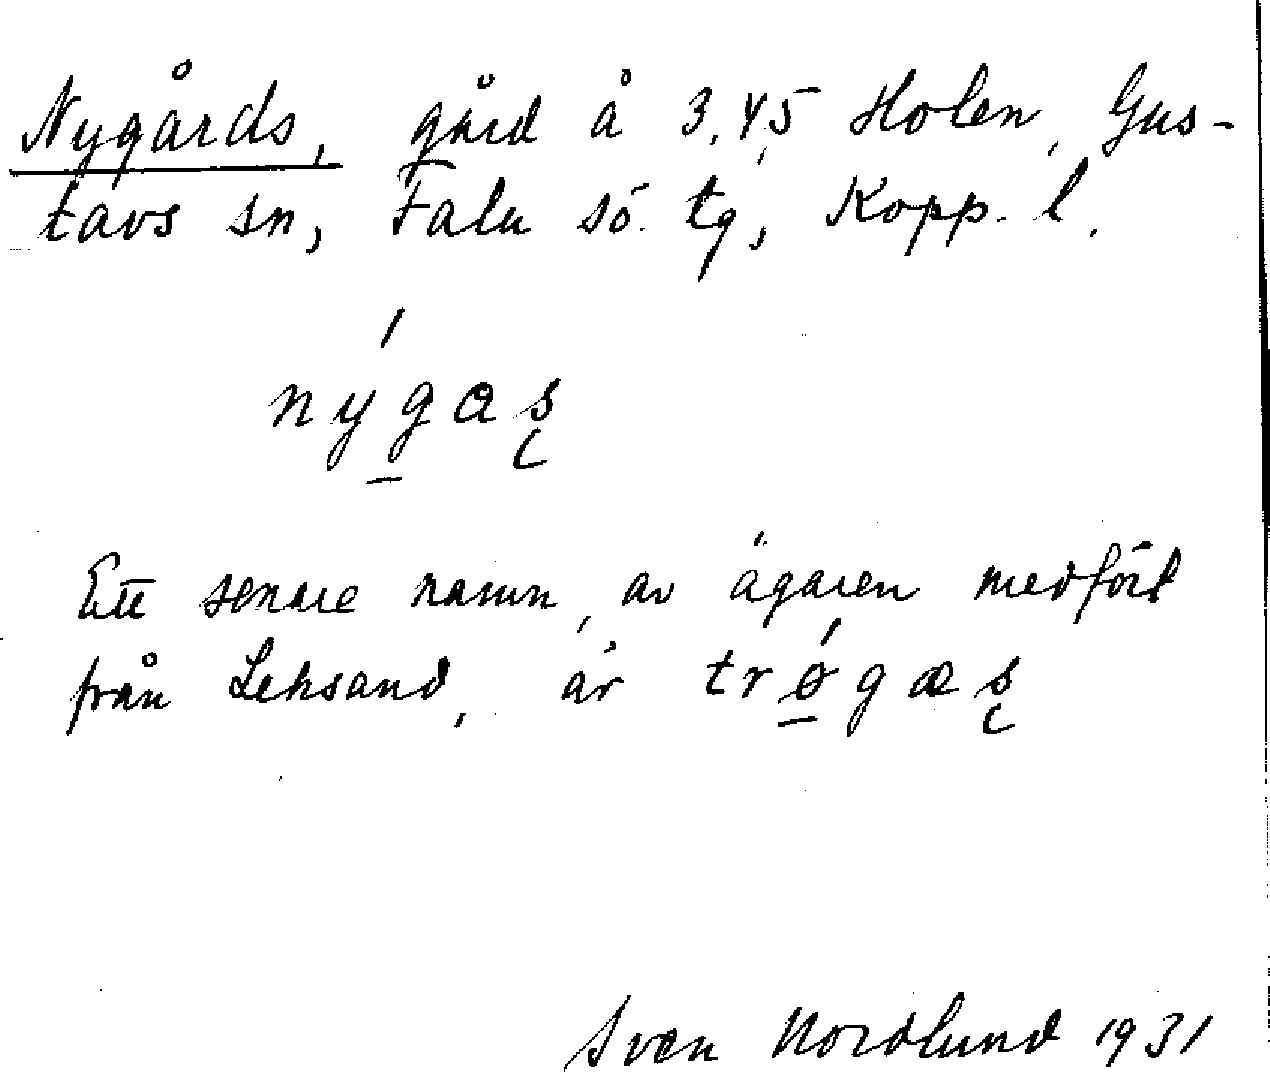 Nygårds, gård å 3,45 Holen, Gus-
tavs sn, Falu sö. tg, Kopp. l.
ný̲gaʂ
Ett senare namn, av ägaren medfört
från Leksand, är trǿ̲gæʂ
Sven Nordlund 1931